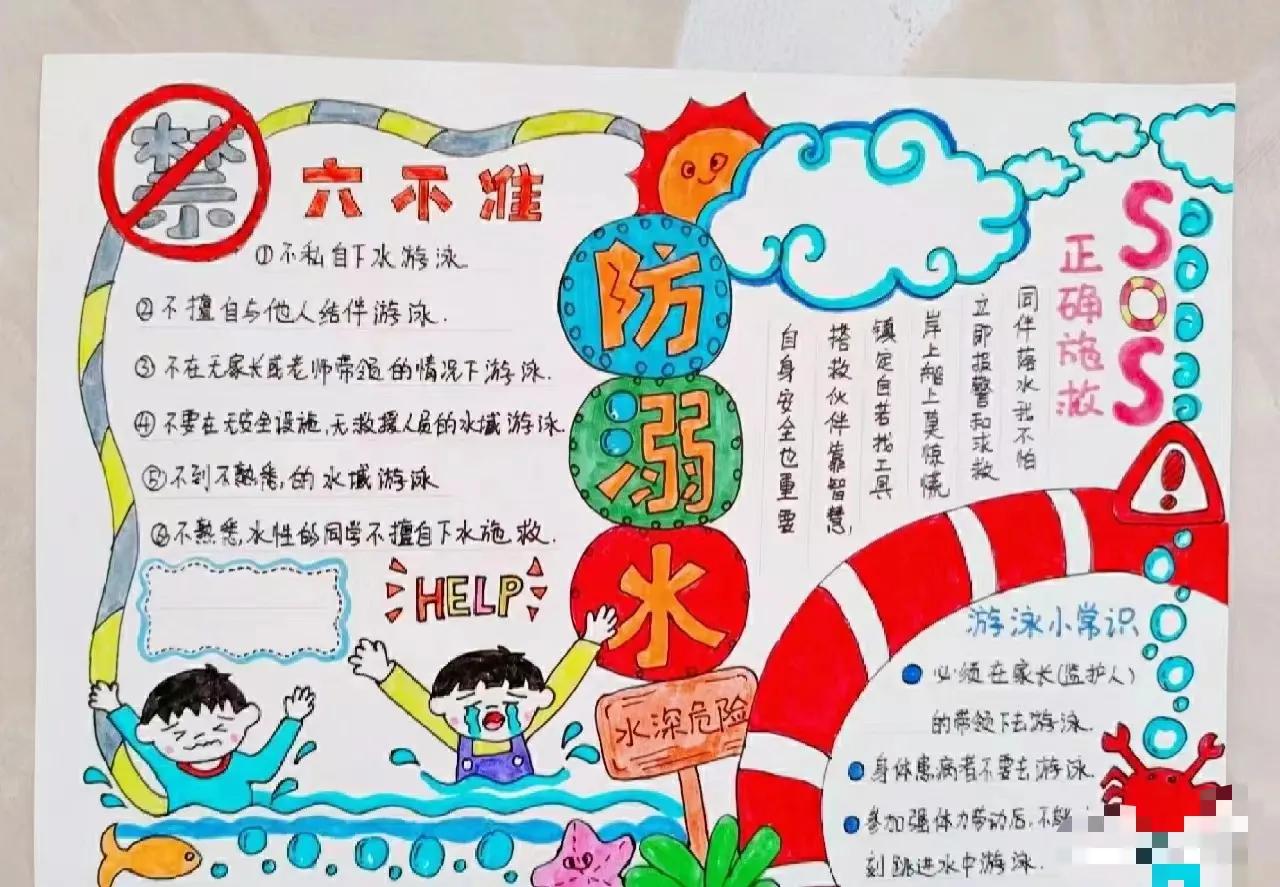 禁
六不准
①不私自下水游泳
②不擅自与他人结伴游泳.
③不在无家长或老师带领的情况下游泳.
④不要在无安全设施、无救援人员的水域游泳.
⑤不到不熟悉的水域游泳
⑥不熟悉水性的同学不擅自下水施救.
HELP
防溺水
水深危险
SOS
正确施救
同伴落水我不怕
立即报警和求救
岸上船上莫惊慌
镇定自若找工具
搭救伙伴靠智慧
自身安全也重要
游泳小常识
必须在家长(监护人)
的带领下去游泳.
身体患病者不要去游泳.
参加强体力劳动后,不能
刻跳进水中游泳.